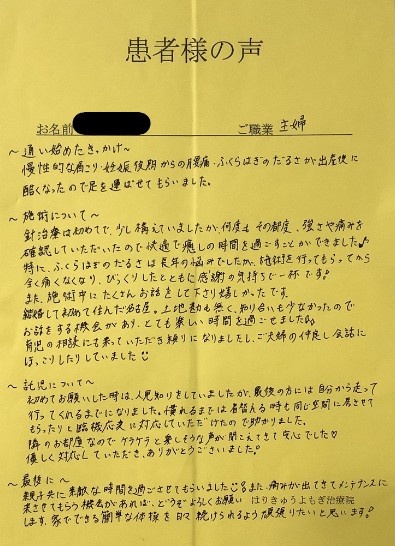 患者様の声
お名前
ご職業 主婦
～通い始めたきっかけ～
慢性的な肩こり・妊娠後期からの腰痛・ふくらはぎのだるさが出産後に
酷くなったので足を運ばせてもらいました。
～施術について～
針治療は初めてで、少し構えていましたが、何度も その都度、強さや痛みを
確認していただいたので快適で癒しの時間を過ごすことができました♪
特に、ふくらはぎのだるさは長年の悩みでしたが、施術を行ってもらってから
全く痛くなくなり、びっくりしたとともに感謝の気持ちで一杯です!
また、施術中にたくさんお話をして下さり嬉しかったです。
結婚して初めて住んだ名古屋。土地勘も無く、知り合いも少なかったので
お話をする機会があり、とても楽しい時間を過ごせました♪
育児の相談にも乗っていただき頼りになりましたし、ご夫婦の仲良し会話に
ほっこりしていました
～託児について～
初めてお願いした時は、人見知りをしていましたが、最後の方には自分から走って
行ってくれるまでになりました。慣れるまでは着替える時も同じ空間に居させて
もらったりと臨機応変に対応していただけたので助かりました。
隣のお部屋なのでケラケラと楽しそうな声が聞こえてきて安心でした♡
優しく対応していただき、ありがとうございました。
～最後に～
親子共に素敵な時間を過ごさせてもらいました また、痛みが出てきてメンテナンスに
来させてもらう機会があれば、どうぞよろしくお願い はりきゅうよもぎ治療院
します。家でできる簡単な体操を日々続けられるよう頑張りたいと思います!